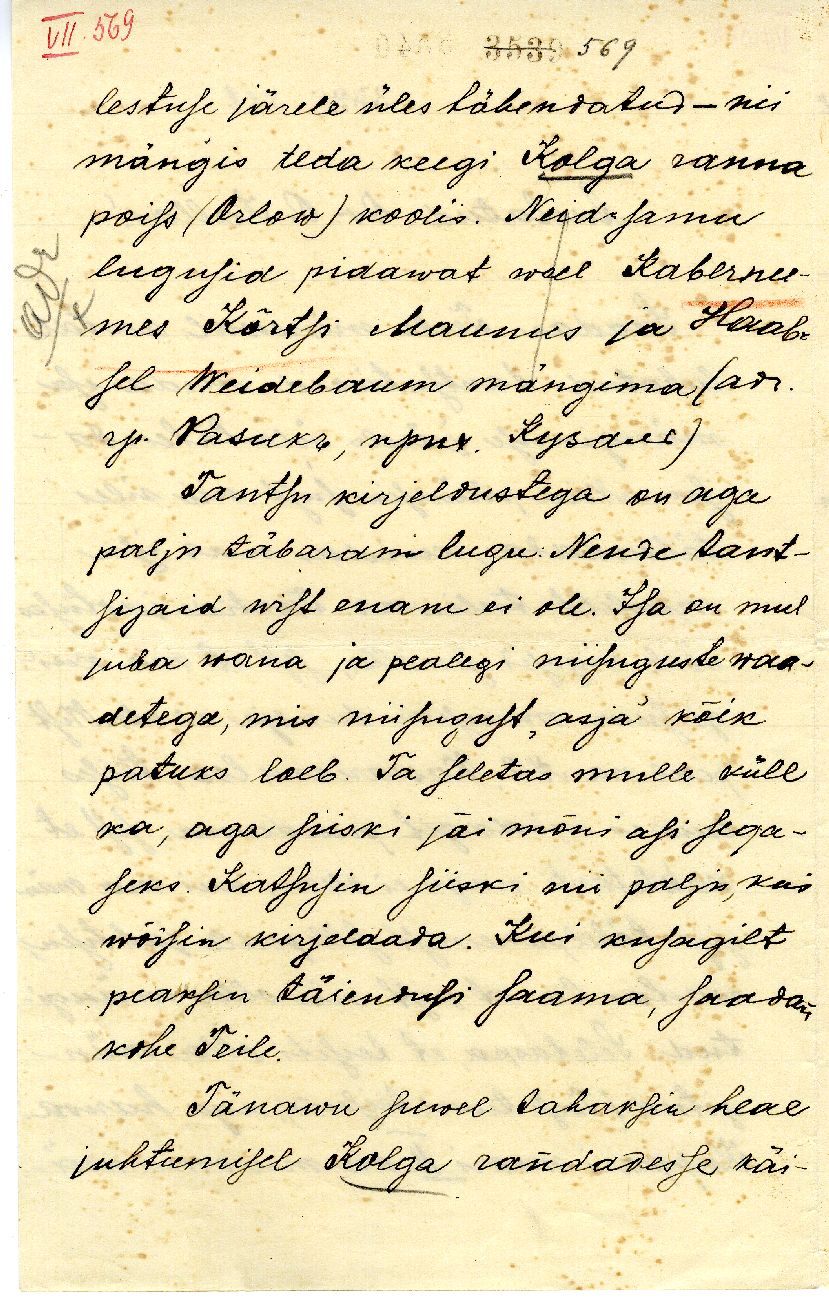 VII. 569
3539 569
lestuse järele üles tähendatud – nii
mängis teda keegi Kolga ranna
poiss (Orlow) koolis. Neid-samu
lugusid pidawat weel Kabernee-
adr
x
mes Kõrtsi Maunus ja Haab-
sel Weidebaum mängima (adr.
гр. Разикъ, прих. Кузалъ)
Tantsu kirjeldustega on aga
palju täbaram lugu: Nende tant-
sijaid wist enam ei ole. Isa on mul
juba wana ja pealegi niisuguste waa-
detega, mis niisugust „asja" kõik
patuks loeb. Ta seletas mulle küll
ka, aga siiski jäi mõni asi sega-
seks. Katsusin siiski nii palju, kui
wõisin kirjeldada. Kui kusagilt
peaksin täiendusi saama, saadan
kohe Teile.
Tänawu suwel tahaksin heal
juhtumisel Kolga randadesse käi-